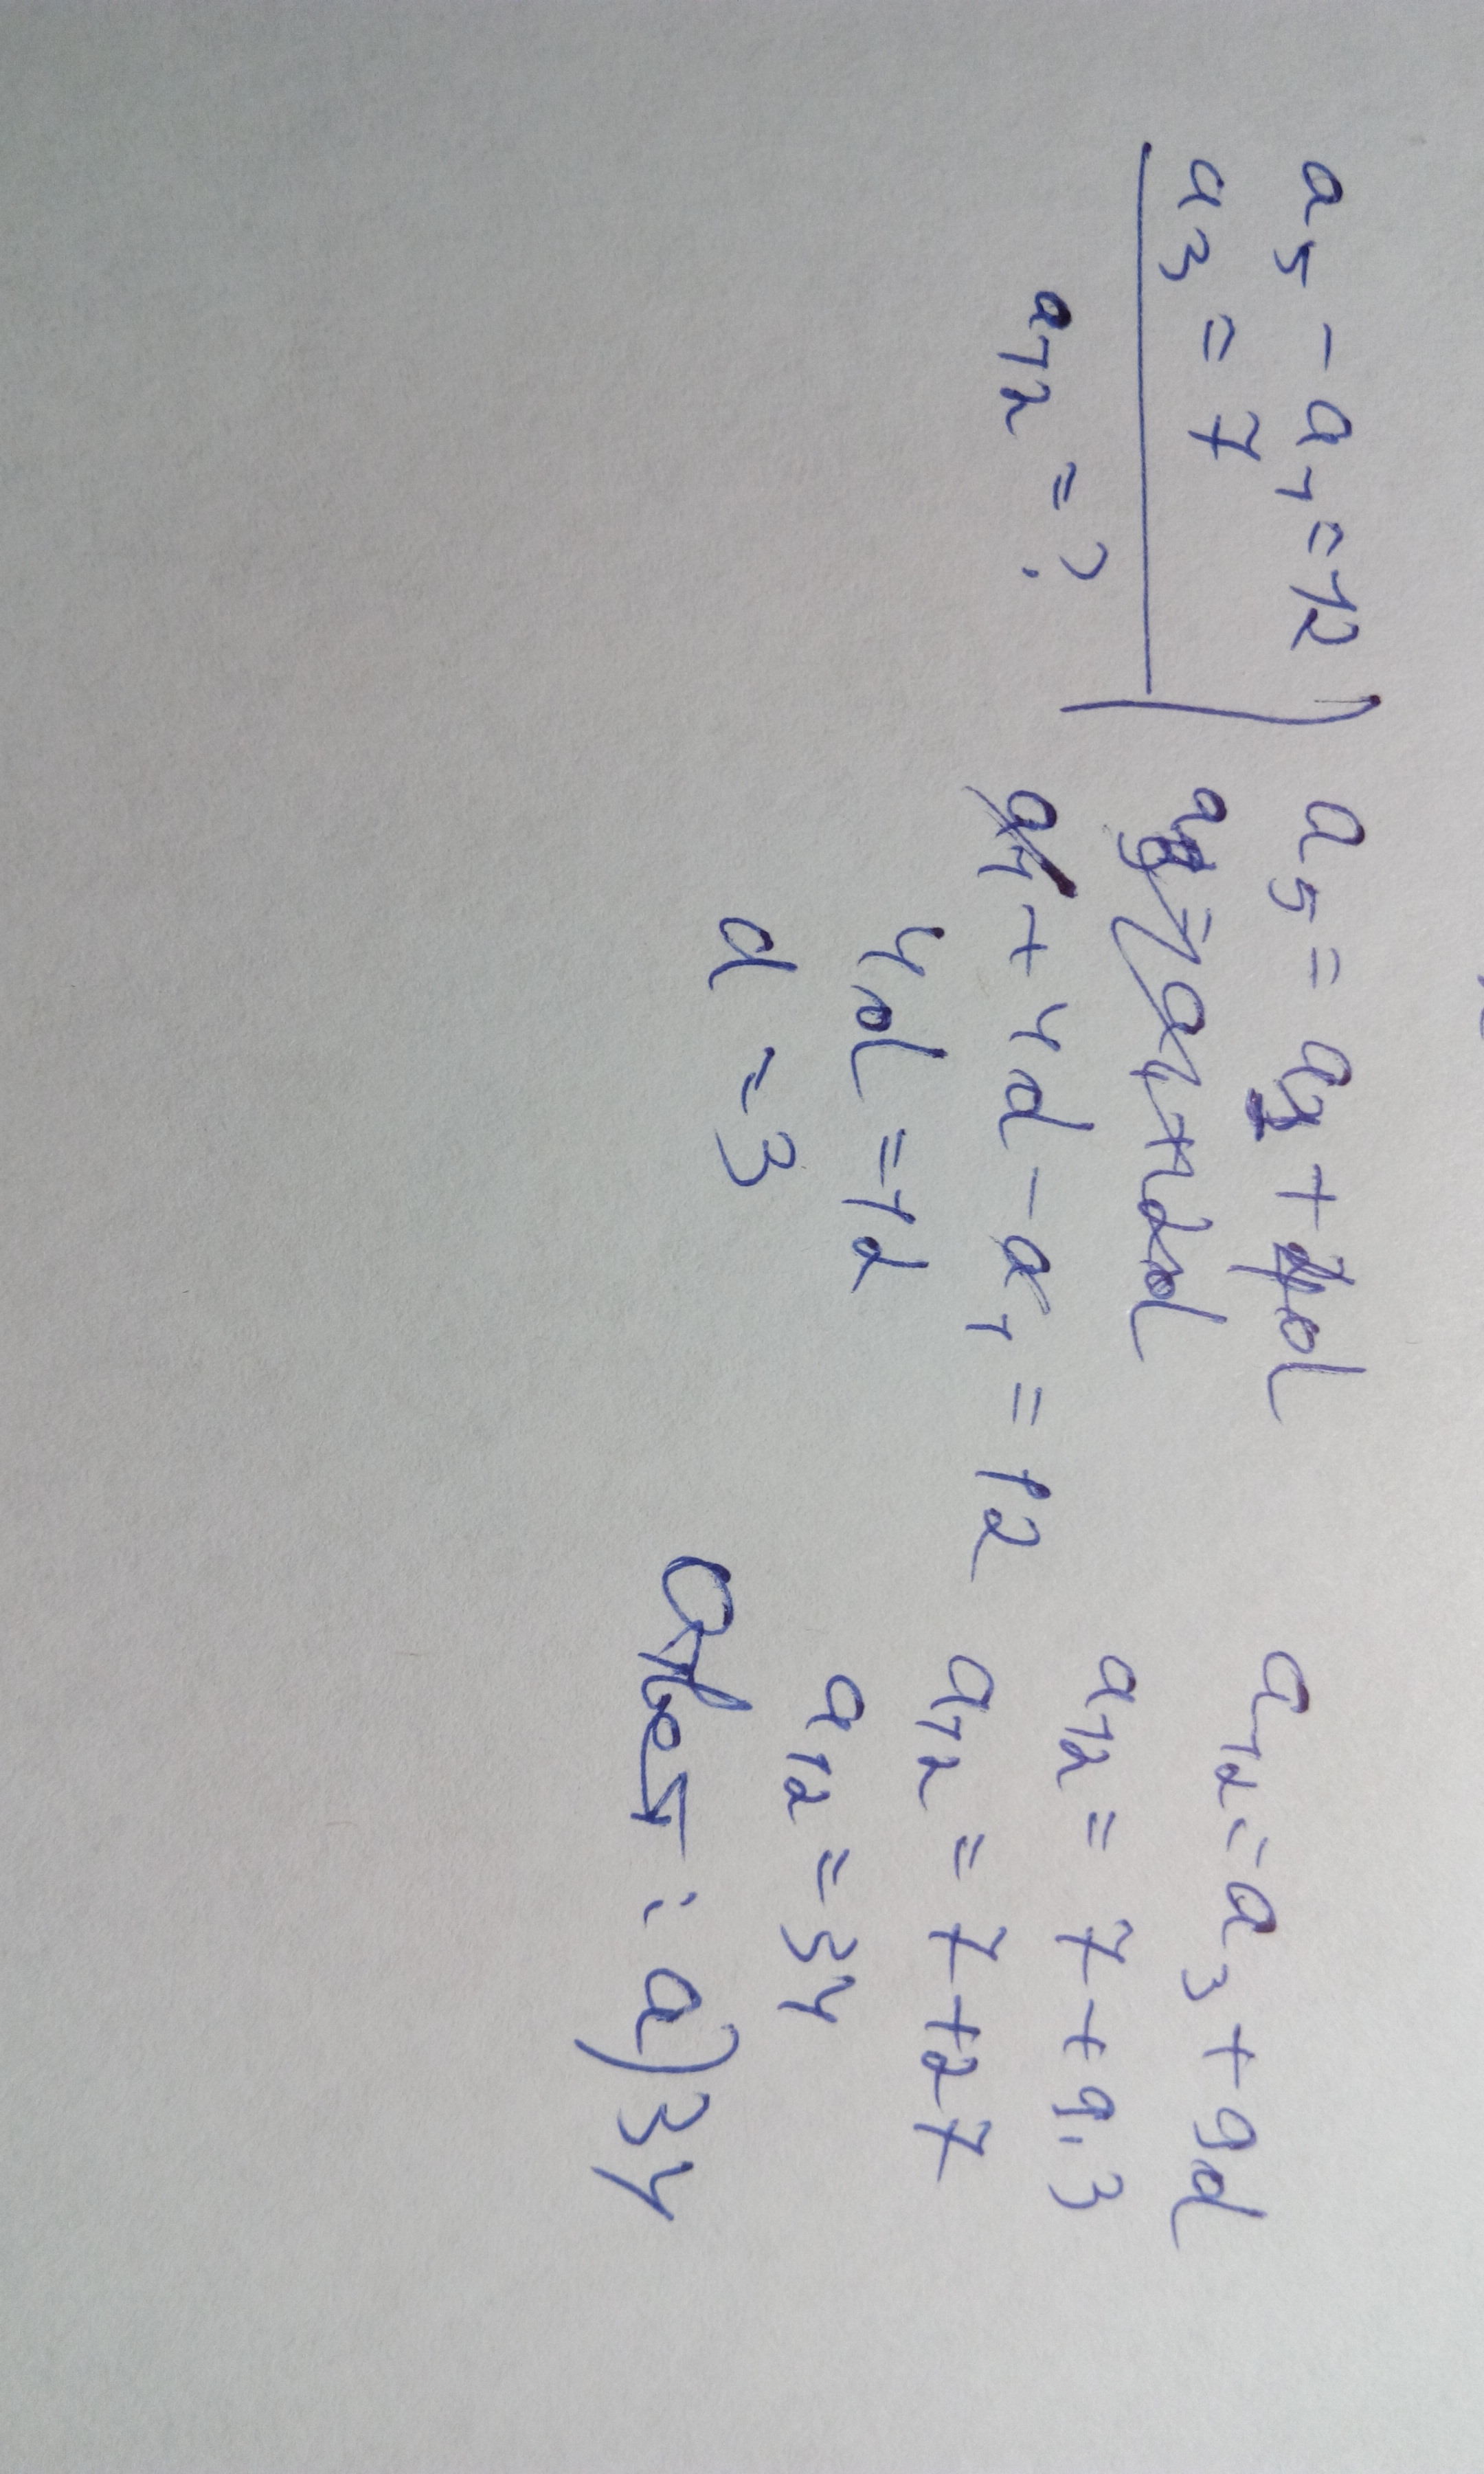 a₅ - a₁ = 12
a₃ = 7
a₁₂ = ?
a₅ = a₁ + 4d
a₁ + 4d - a₁ = 12
4d = 12
d = 3
a₁₂ = a₃ + 9d
a₁₂ = 7 + 9 · 3
a₁₂ = 7 + 27
a₁₂ = 34
Ответ: а) 34